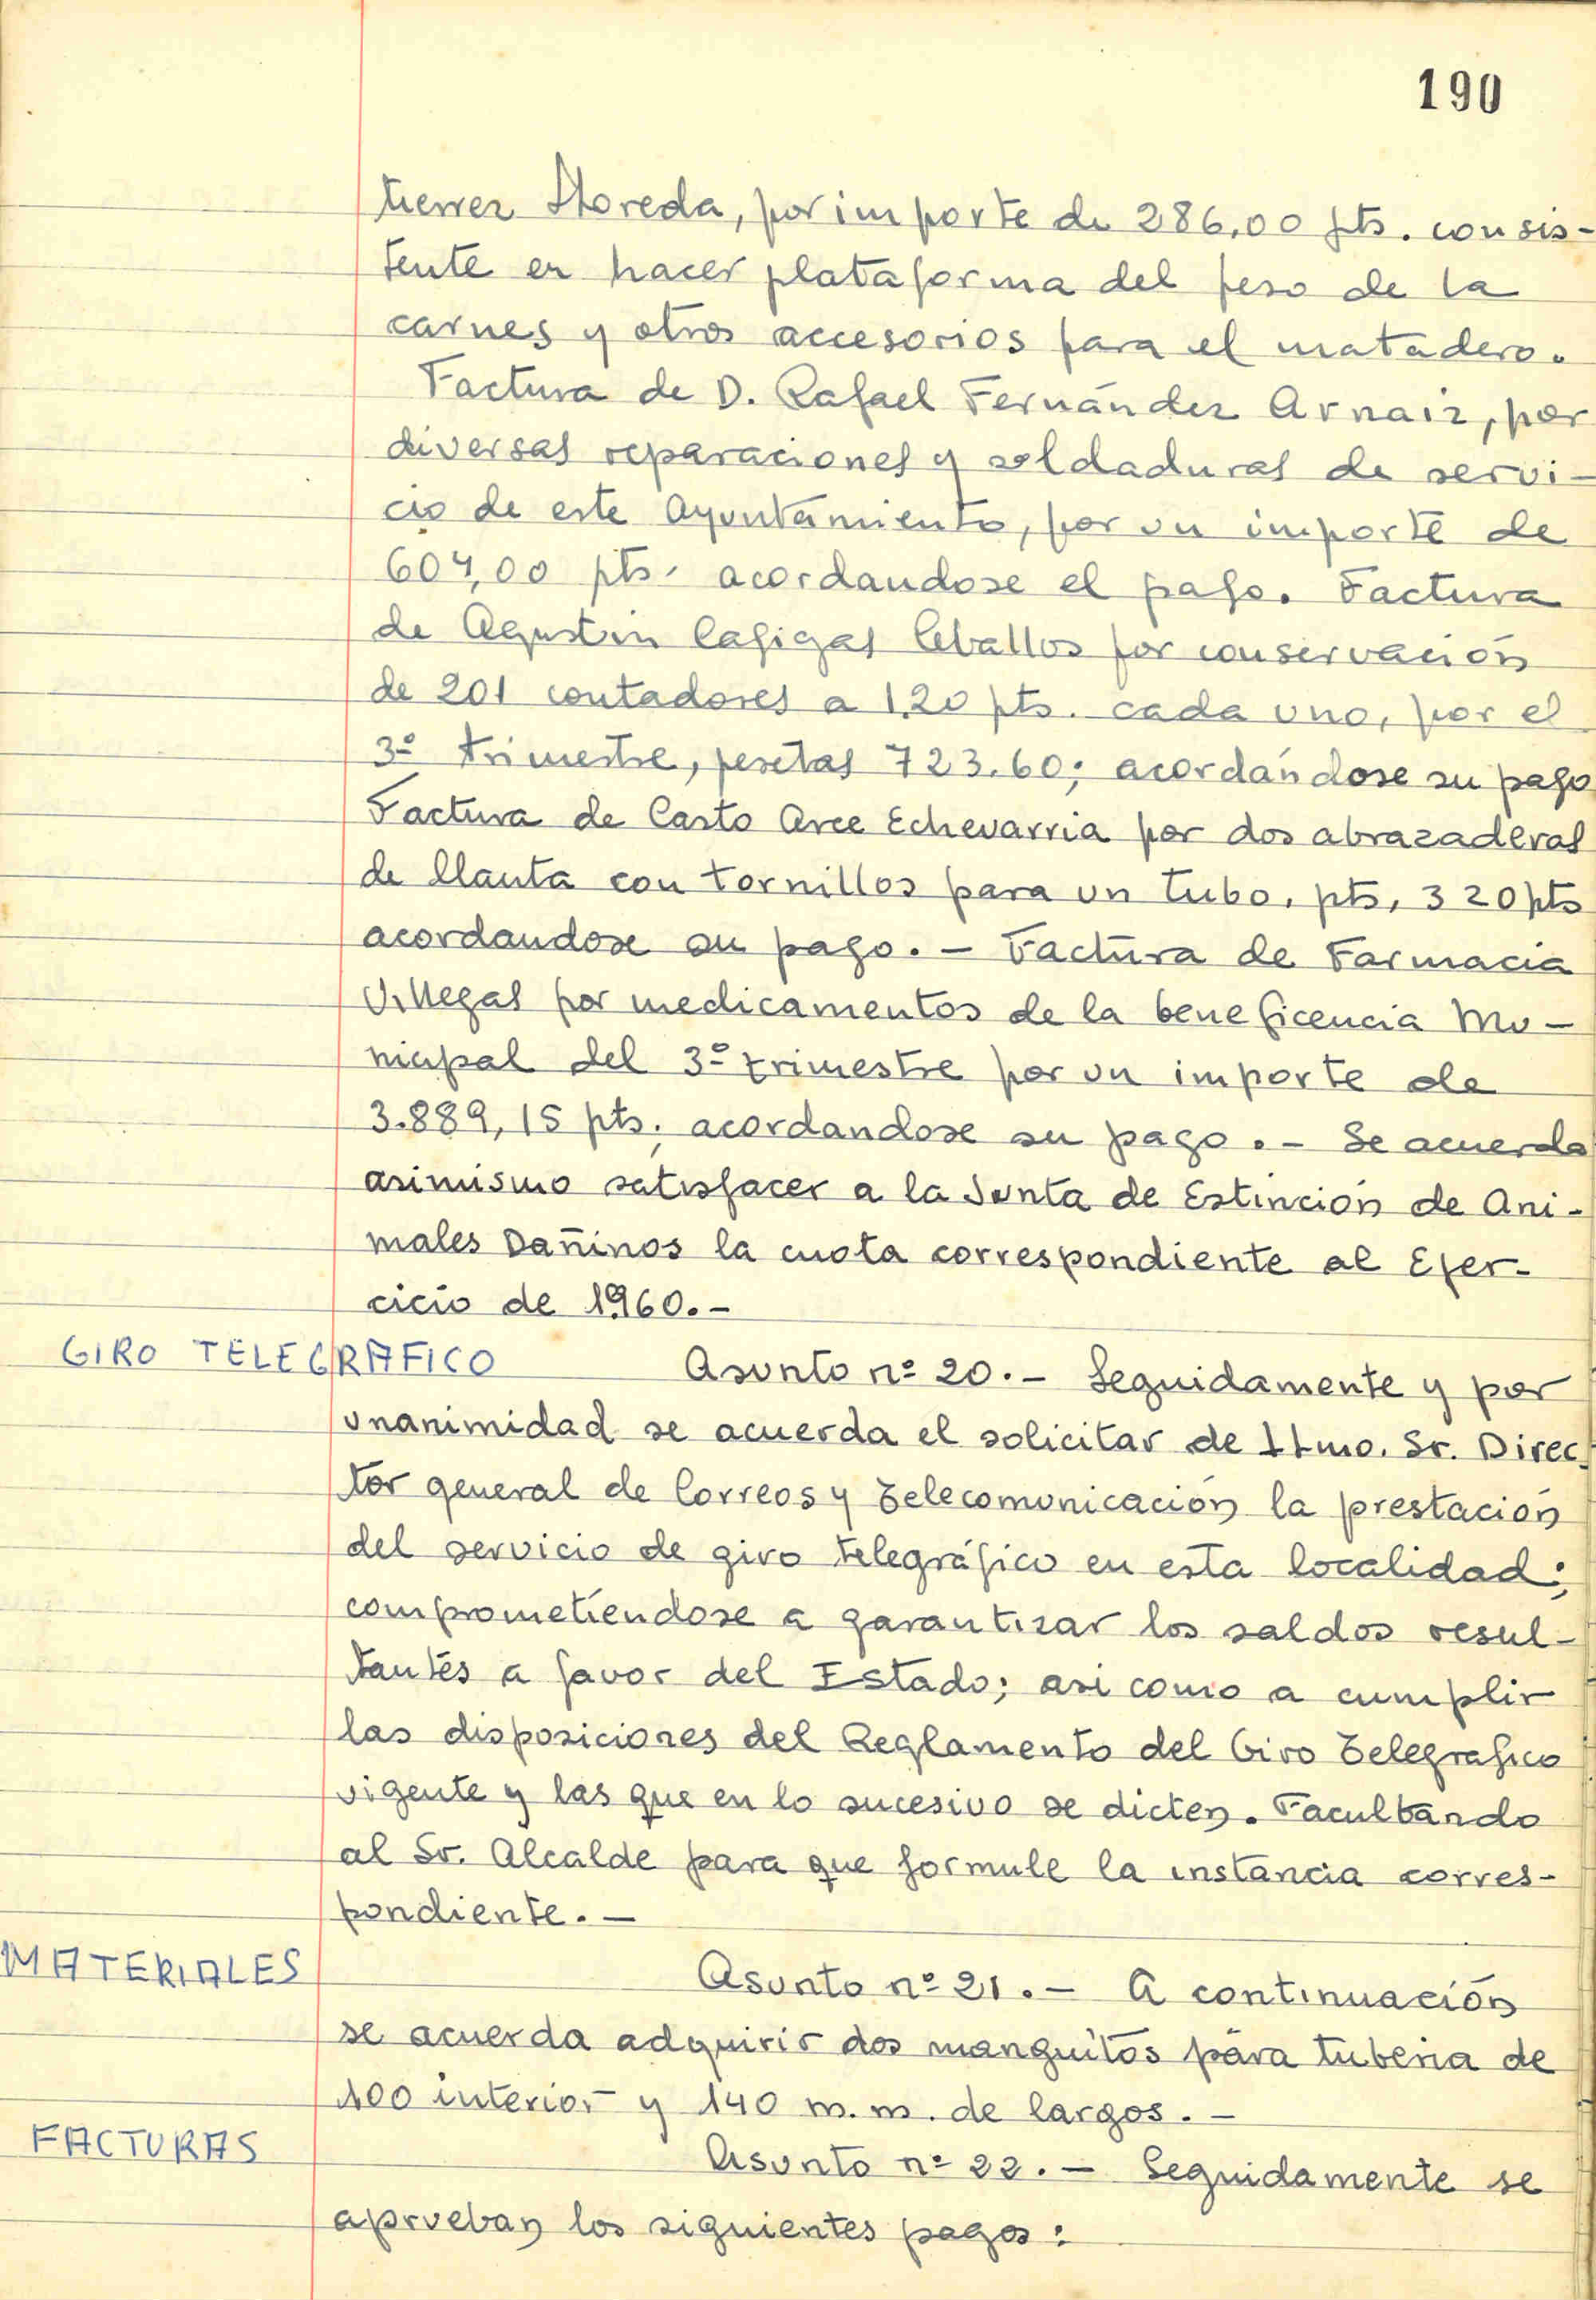 190
tierrez Moreda, por importe de 286,00 pts. consis-
tente en hacer plataforma del peso de la
carnes y otros accesorios para el matadero.
Factura de D. Rafael Fernández Arnaiz, por
diversas reparaciones y soldaduras de servi-
cio de este Ayuntamiento, por un importe de
604,00 pts. acordandose el pago. Factura
de Agustin Cagigas Ceballos por conservación
de 201 contadores a 1,20 pts. cada uno, por el
3º trimestre, pesetas 723.60; acordándose su pago
Factura de Casto Arce Echevarria por dos abrazaderas
de llanta con tornillos para un tubo, pts, 320 pts
acordandose su pago. - Factura de Farmacia
Villegas por medicamentos de la beneficencia Mu-
nicipal del 3º trimestre por un importe de
3.889,15 pts; acordandose su pago. - Se acuerda
asimismo satisfacer a la Junta de Estinción de Ani-
males Dañinos la cuota correspondiente al Ejer-
cicio de 1960.-
GIRO TELEGRAFICO Asunto nº 20.- Seguidamente y por
unanimidad se acuerda el solicitar de Itmo. Sr. Direc-
tor general de Correos y Telecomunicación la prestación
del servicio de giro telegráfico en esta localidad;
comprometiendose a garantizar los saldos resul-
tantes a favor del Estado; asi como a cumplir
las disposiciones del Reglamento del Giro Telegrafico
vigente y las que en lo sucesivo se dicten. Facultando
al Sr. Alcalde para que formule la instancia corres-
pondiente. -
MATERIALES Asunto nº 21.- A continuación
se acuerda adquirir dos manguitos para tuberia de
100 interior y 140 m.m. de largos. -
FACTURAS Asunto nº 22.- Seguidamente se
aprueban los siguientes pagos: